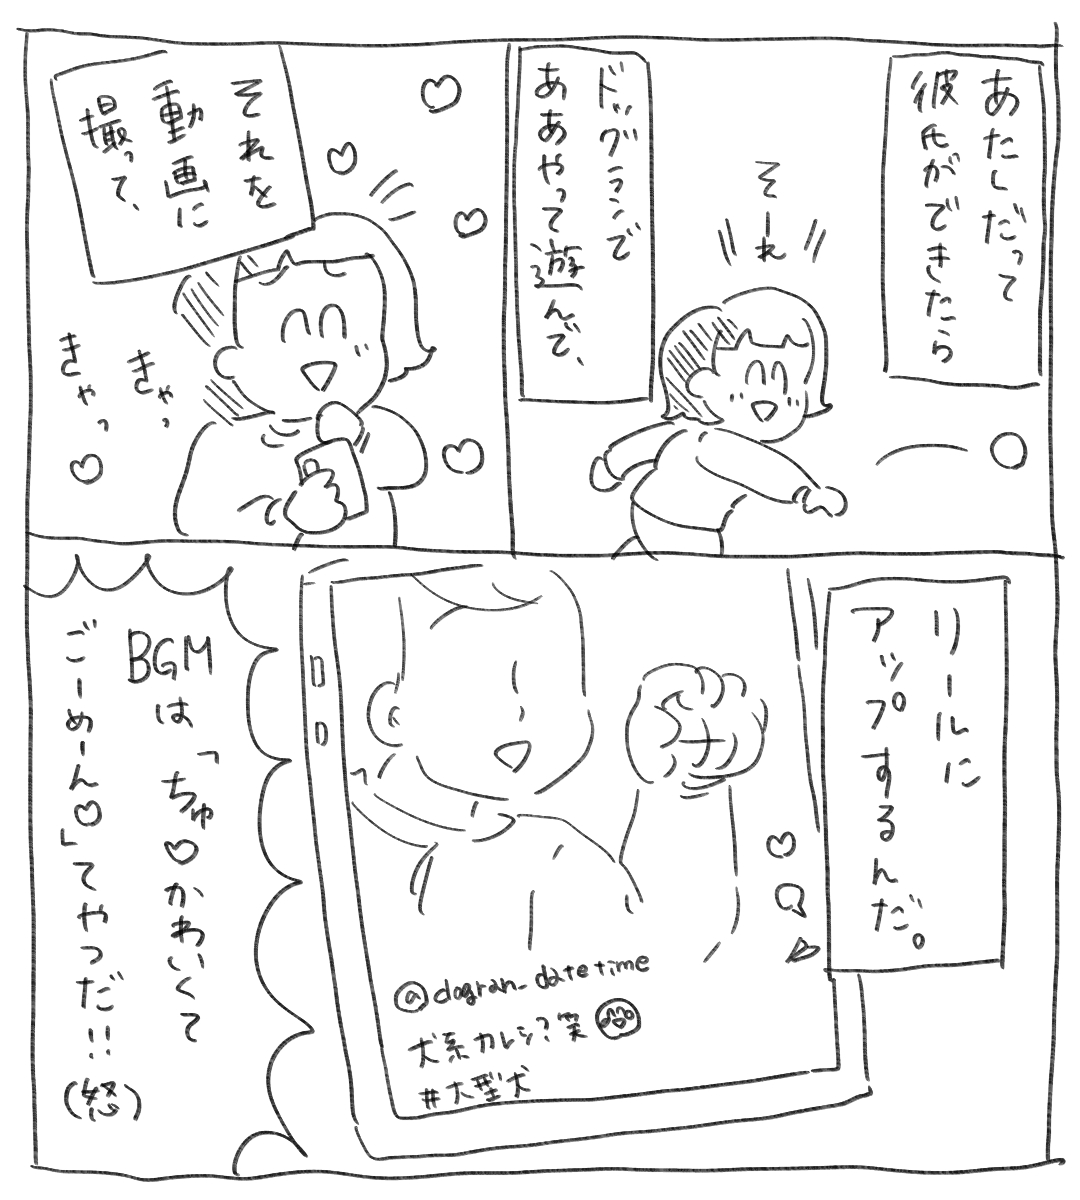 あたしだって
彼氏ができたら
そーれ
ドッグランで
ああやって遊んで、
それを
動画に
撮って、
きゃっ
きゃっ♡
リールに
アップするんだ。
@dogran_datetime
犬系カレシ?笑
#大型犬
BGMは「ちゅ♡かわいくて
ごーめーん♡」てやつだ!!(怒)